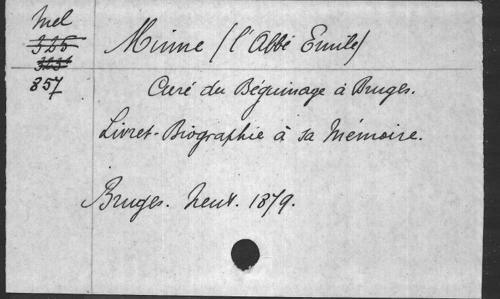 Mel
325
3231
857
Minne (l'Abbé Emile)
Curé du Béguinage à Bruges.
Livret-Biographie à sa Mémoire.
Bruges. Neut. 1879.